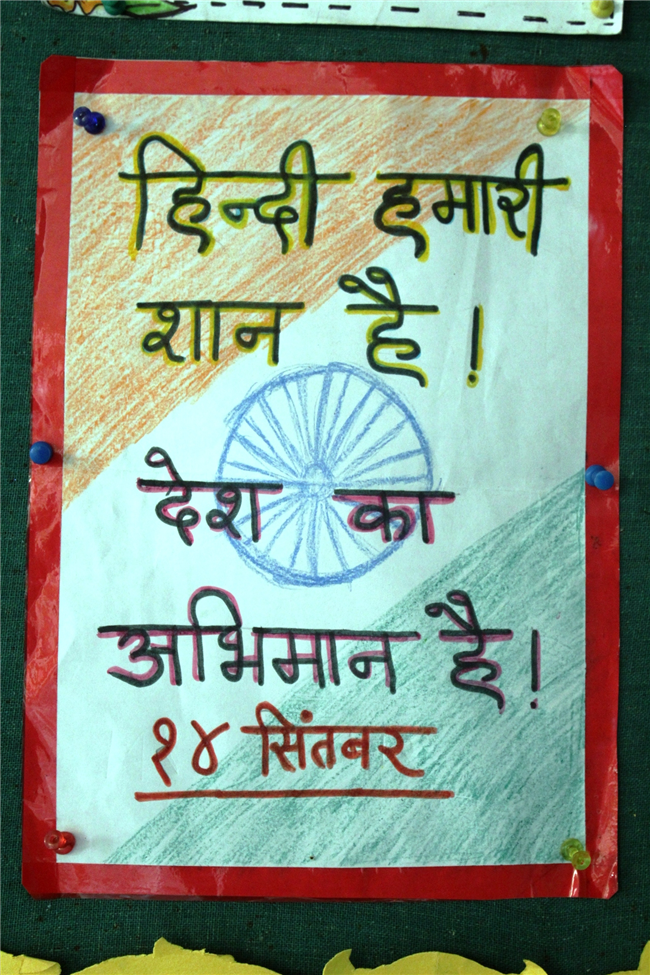 हिन्दी हमारी
शान है!
देश का
अभिमान है!
१४ सिंतबर